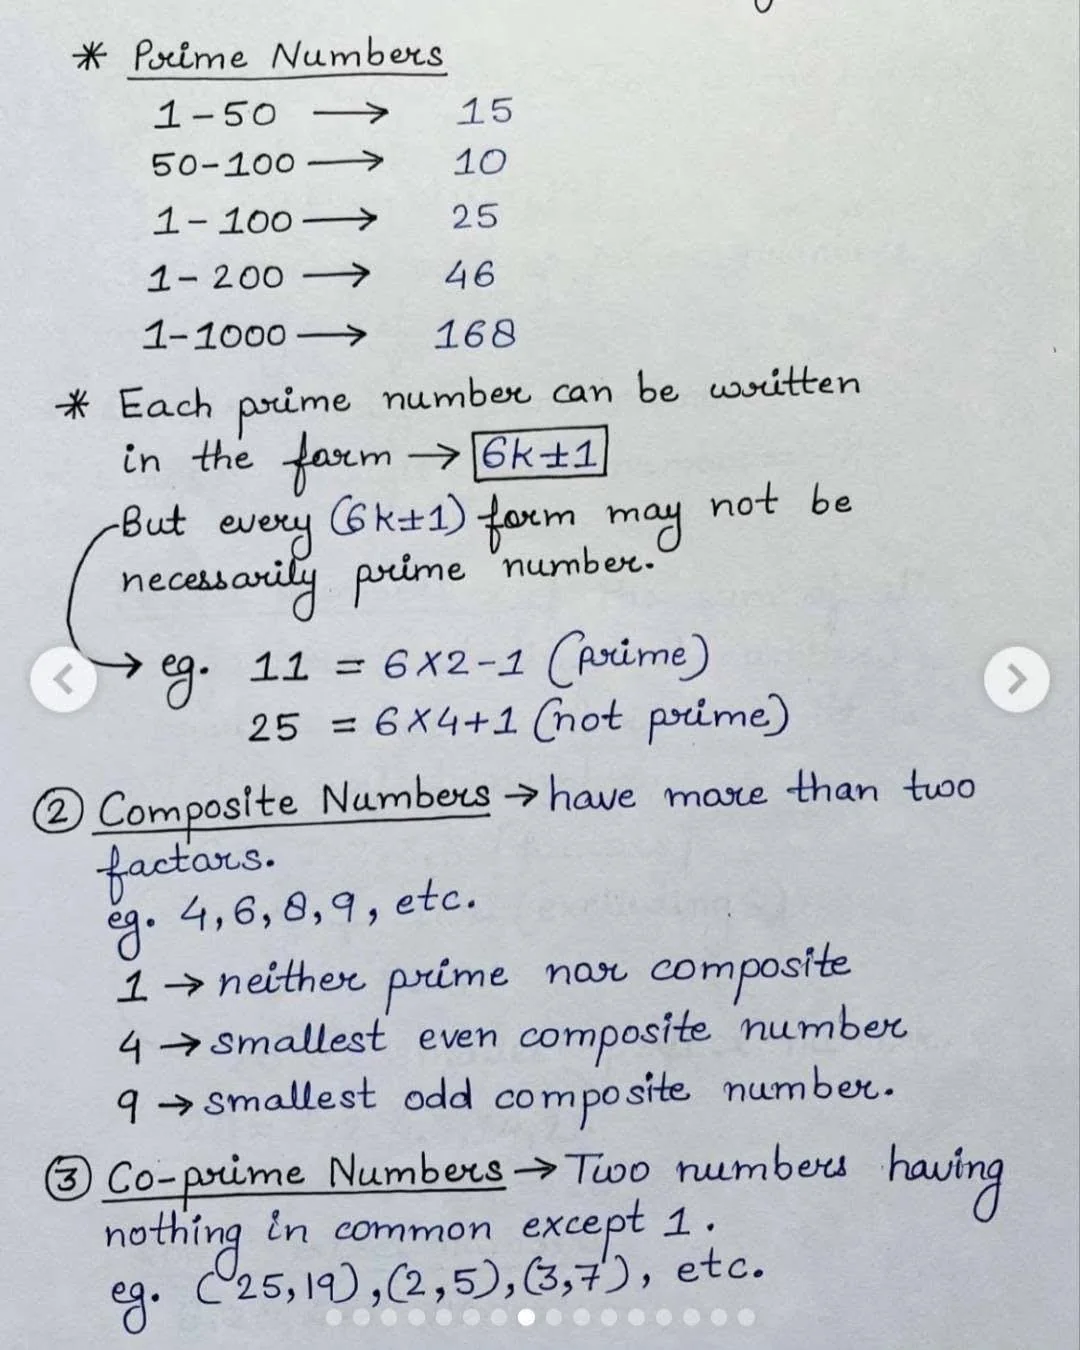 * Prime Numbers
1-50 → 15
50-100 → 10
1-100 → 25
1-200 → 46
1-1000 → 168
* Each prime number can be written
in the form → 6k±1
But every (6k±1) form may not be
necessarily prime number.
→ eg. 11 = 6×2-1 (prime)
25 = 6×4+1 (not prime)
② Composite Numbers → have more than two
factors.
eg. 4,6,8,9, etc.
1 → neither prime nor composite
4 → smallest even composite number
9 → smallest odd composite number.
③ Co-prime Numbers → Two numbers having
nothing in common except 1.
eg. (25,19),(2,5),(3,7), etc.